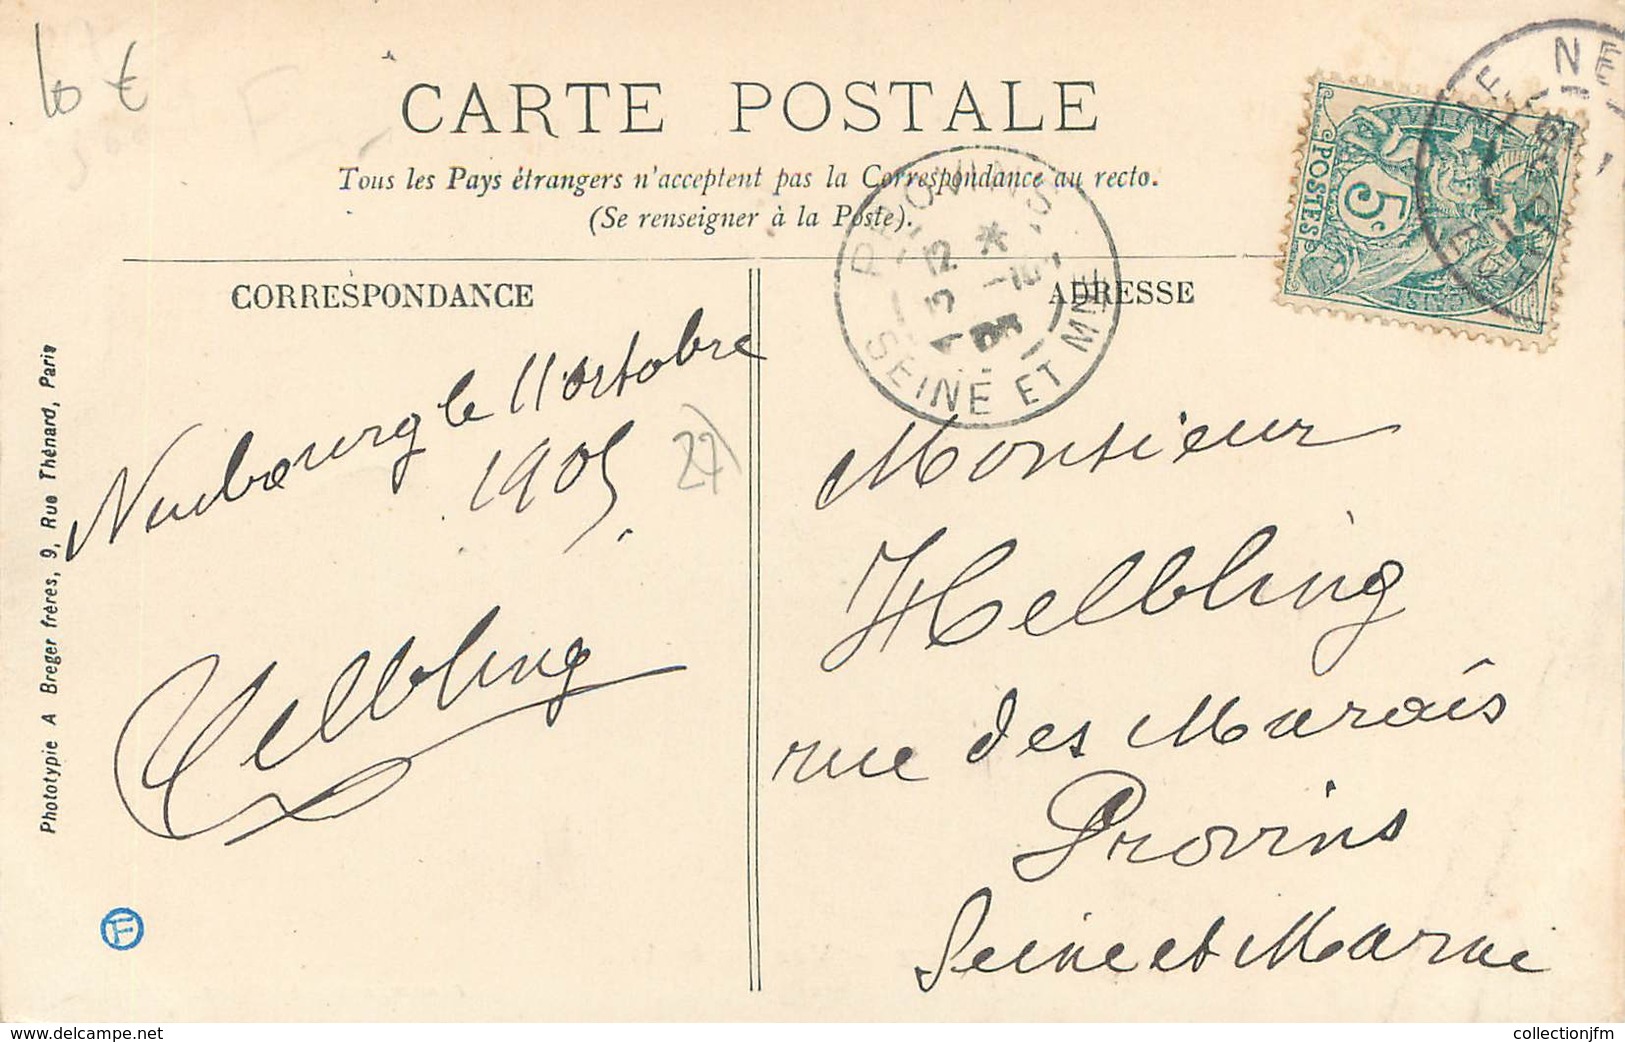 10 €
CARTE POSTALE
Tous les Pays étrangers n'acceptent pas la Correspondance au recto.
(Se renseigner à la Poste).
POSTES
5c
PROVINS
12 *
SEINE ET MNE
CORRESPONDANCE
ADRESSE
Neubourg le 11 octobre
1905.
27)
Helbling
Monsieur
Helbling
rue des Marais
Provins
Seine et Marne
Phototypie A Breger frères, 9, Rue Thénard, Paris
F
www.delcampe.net
collectionjfm